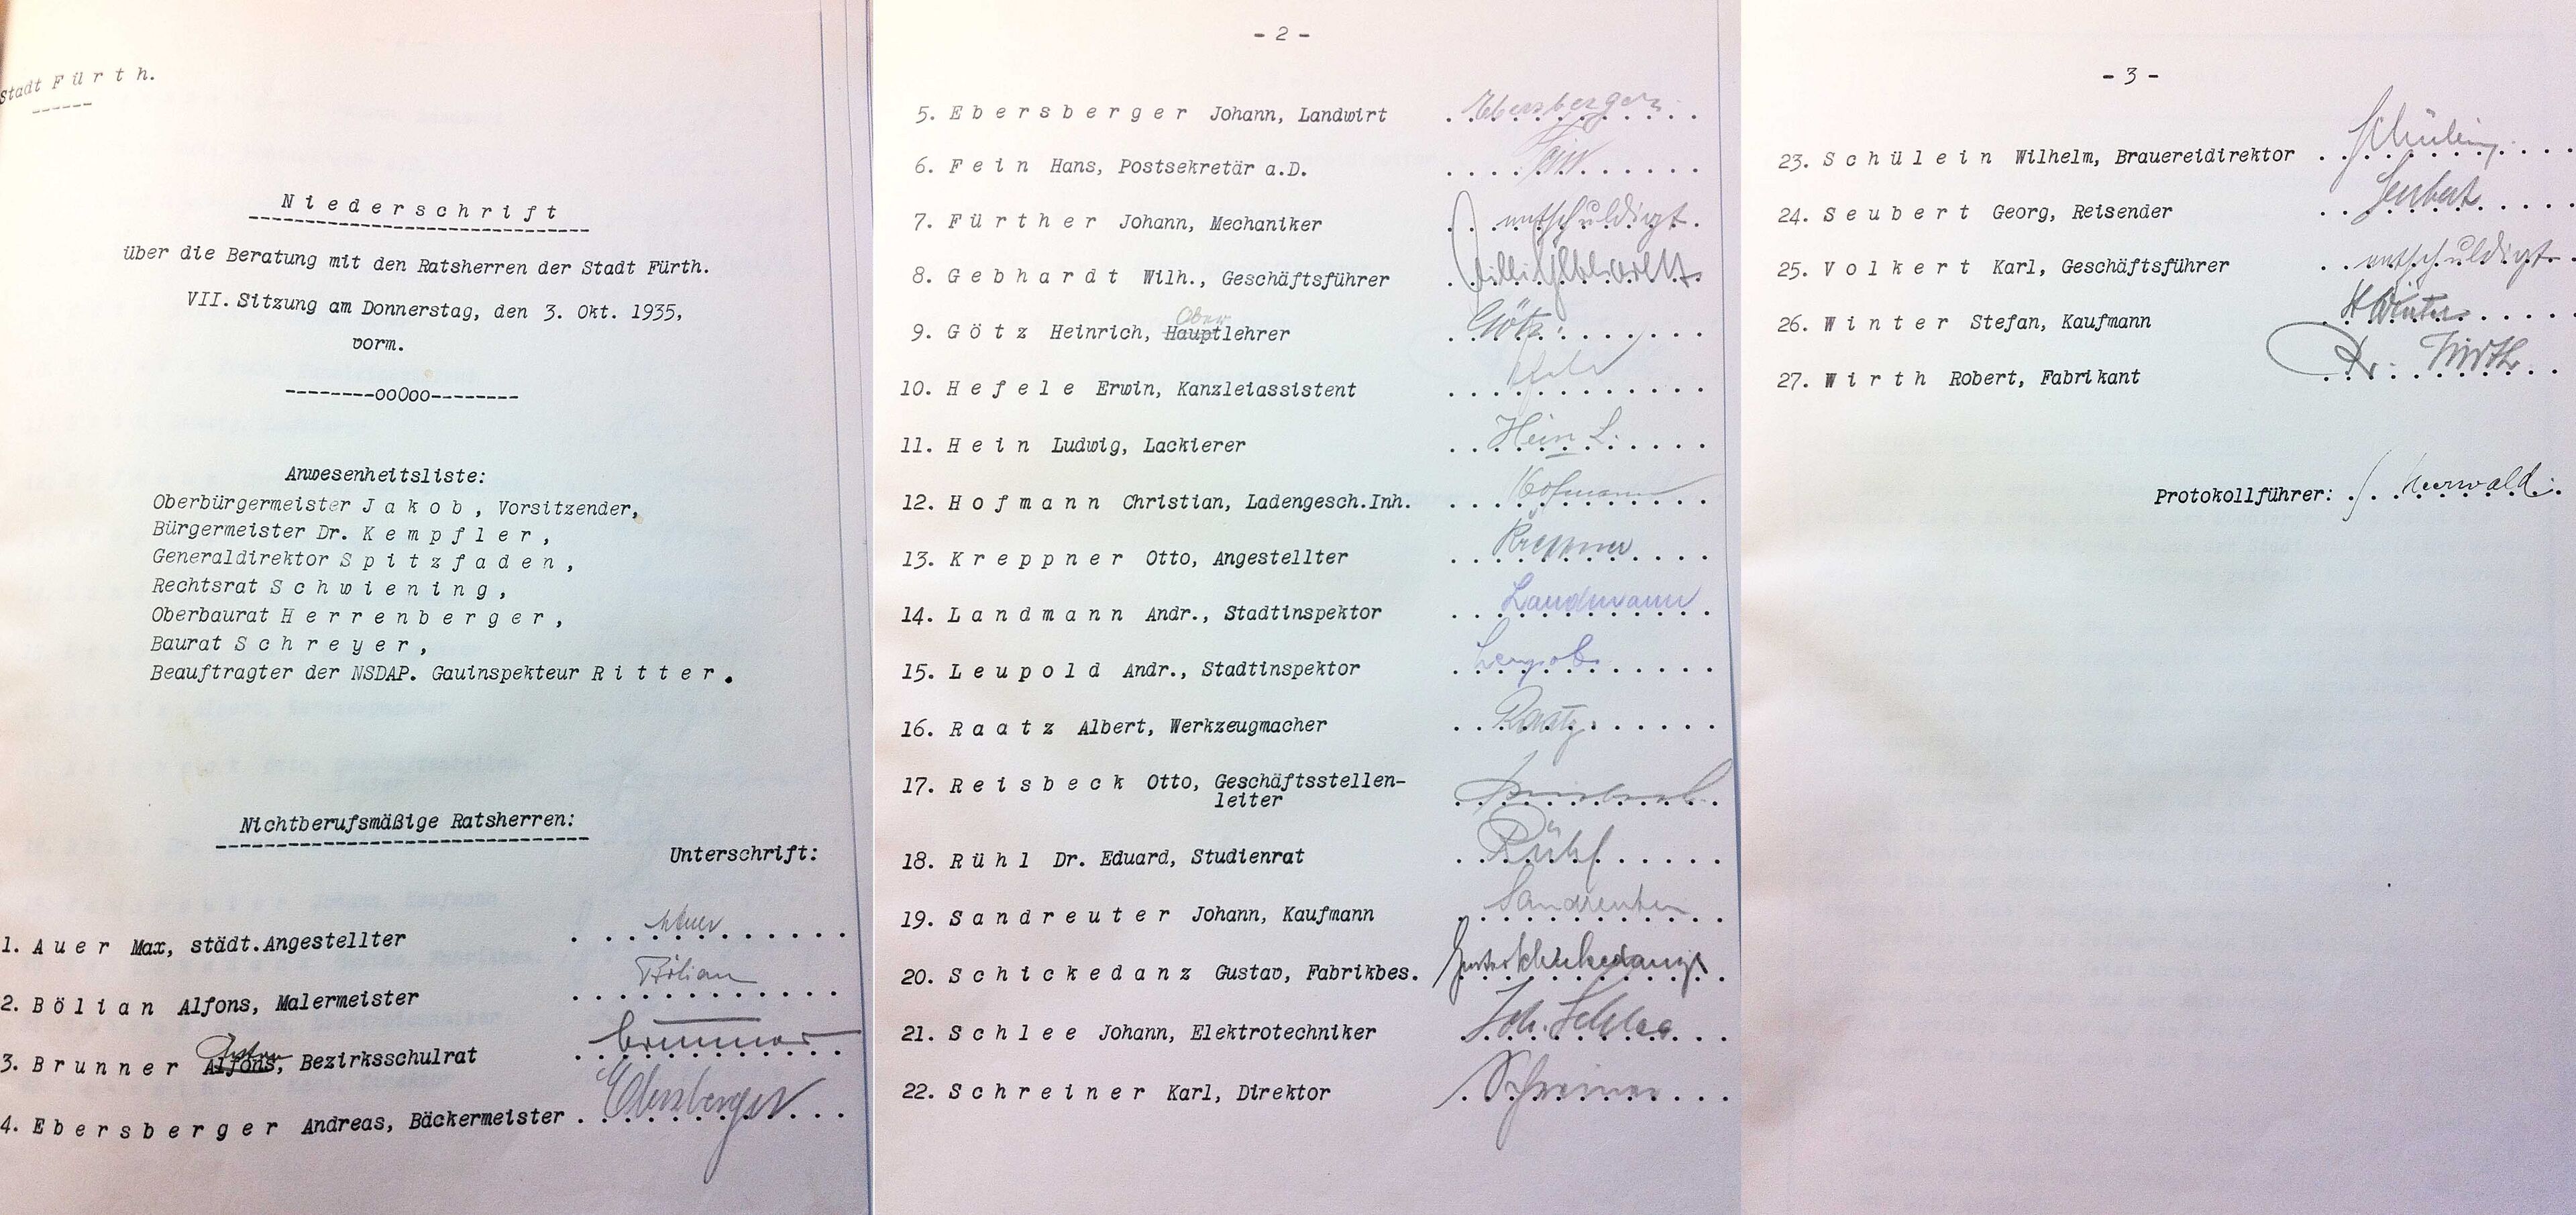 Stadt Fürth.
Niederschrift
über die Beratung mit den Ratsherren der Stadt Fürth.
VII. Sitzung am Donnerstag, den 3. Okt. 1935,
vorm.
--------ooOoo--------
Anwesenheitsliste:
Oberbürgermeister Jakob, Vorsitzender,
Bürgermeister Dr. Kempfler,
Generaldirektor Spitzfaden,
Rechtsrat Schwiening,
Oberbaurat Herrenberger,
Baurat Schreyer,
Beauftragter der NSDAP. Gauinspekteur Ritter.
Nichtberufsmäßige Ratsherren:
Unterschrift:
1. Auer Max, städt.Angestellter Auer
2. Bölian Alfons, Malermeister Bölian
3. Brunner Alfons, Bezirksschulrat Brunner
4. Ebersberger Andreas, Bäckermeister Ebersberger
- 2 -
5. Ebersberger Johann, Landwirt Ebersberger
6. Fein Hans, Postsekretär a.D. Fein
7. Fürther Johann, Mechaniker entschuldigt.
8. Gebhardt Wilh., Geschäftsführer Willi Gebhardt
Ober
9. Götz Heinrich, Hauptlehrer Götz
10. Hefele Erwin, Kanzleiassistent
11. Hein Ludwig, Lackierer Hein L.
12. Hofmann Christian, Ladengesch.Inh. Hofmann
13. Kreppner Otto, Angestellter Kreppner
14. Landmann Andr., Stadtinspektor Landmann
15. Leupold Andr., Stadtinspektor Leupold
16. Raatz Albert, Werkzeugmacher Raatz
17. Reisbeck Otto, Geschäftsstellen-
leiter
18. Rühl Dr. Eduard, Studienrat Rühl
19. Sandreuter Johann, Kaufmann Sandreuter
20. Schickedanz Gustav, Fabrikbes. Gustav Schickedanz
21. Schlee Johann, Elektrotechniker Joh. Schlee
22. Schreiner Karl, Direktor Schreiner
- 3 -
23. Schülein Wilhelm, Brauereidirektor Schülein
24. Seubert Georg, Reisender Seubert
25. Volkert Karl, Geschäftsführer entschuldigt
26. Winter Stefan, Kaufmann St Winter
27. Wirth Robert, Fabrikant R. Wirth
Protokollführer: Meerwald